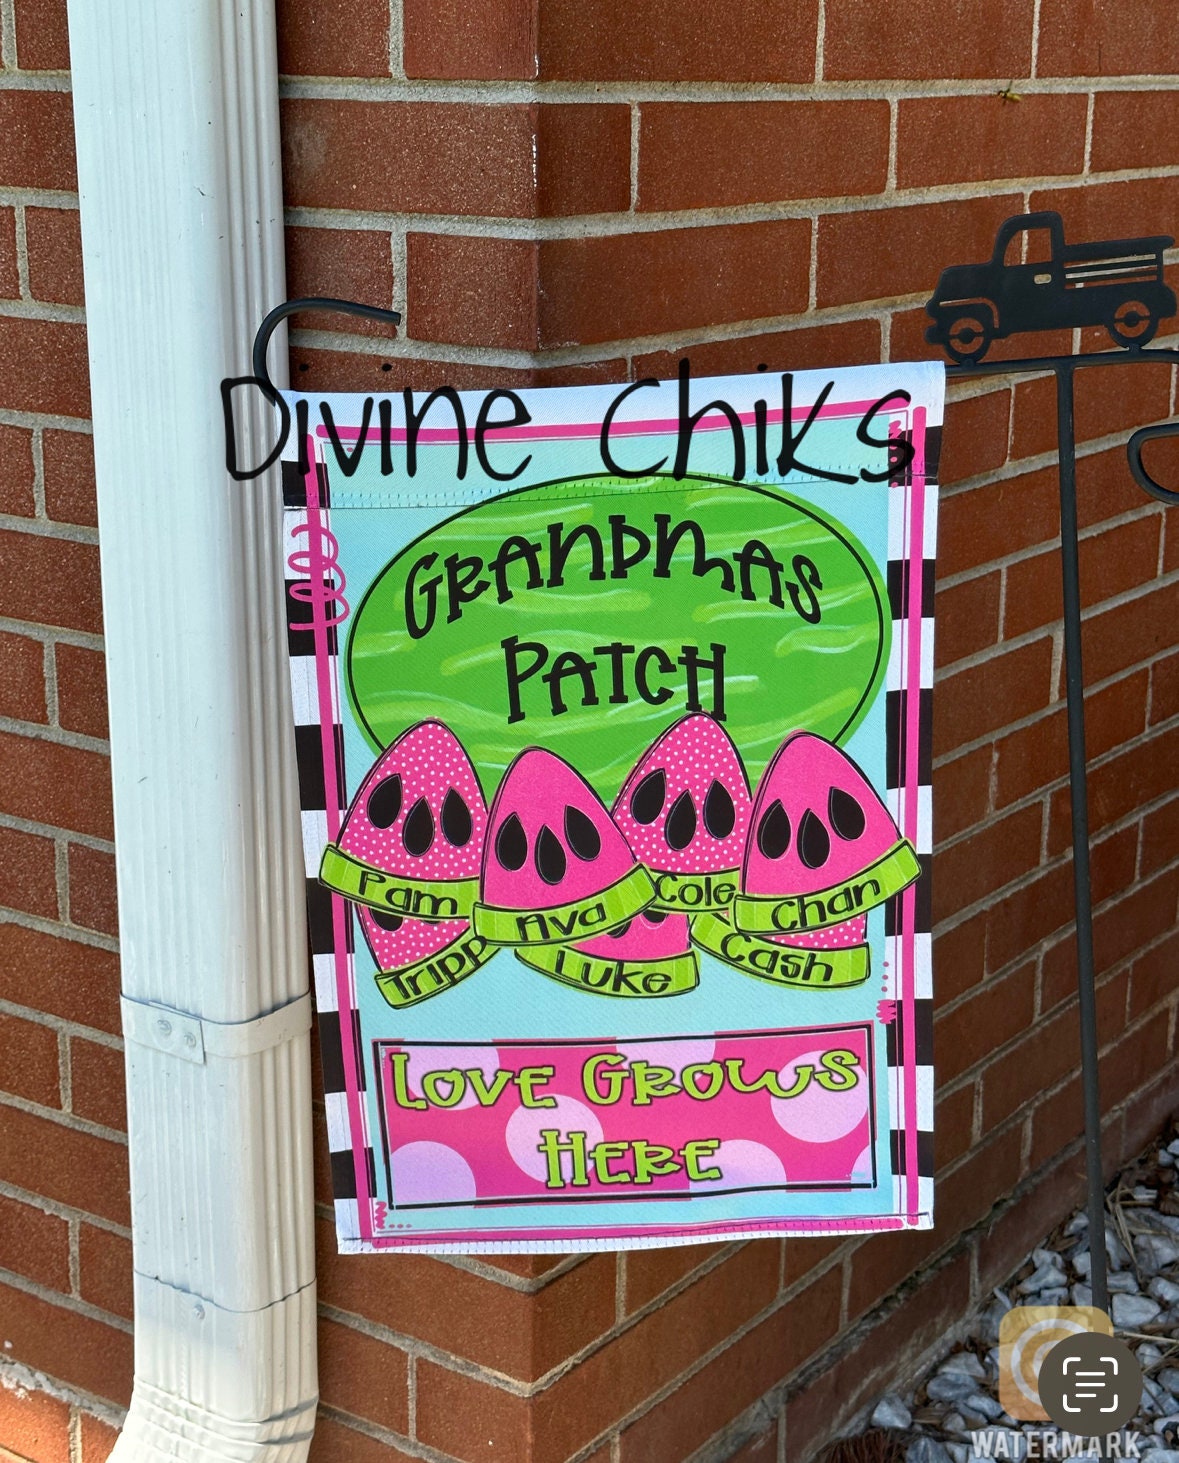 Divine Chiks
GRANDMAS
PATCH
Pam
Ava
Cole
Chan
Tripp
Luke
Cash
LOVE GROWS
HERE
WATERMARK